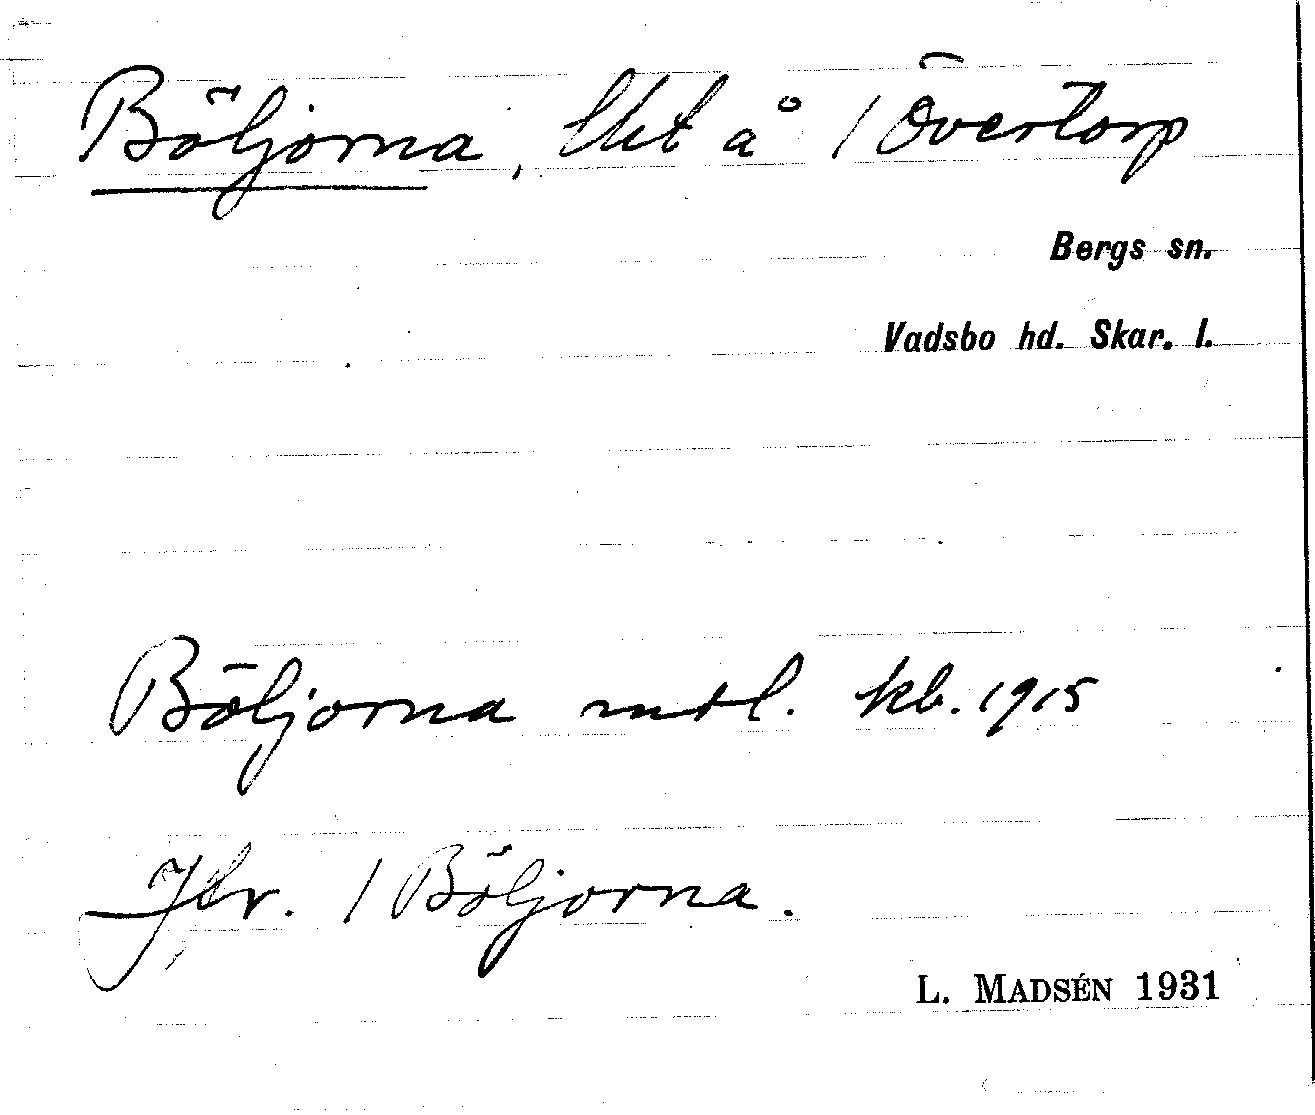 Böljorna, lht å 1 Övertorp
Bergs sn.
Vadsbo hd. Skar. l.
Böljorna mtl. kb. 1915
Jbr. 1 Böljorna.
L. MADSÉN 1931